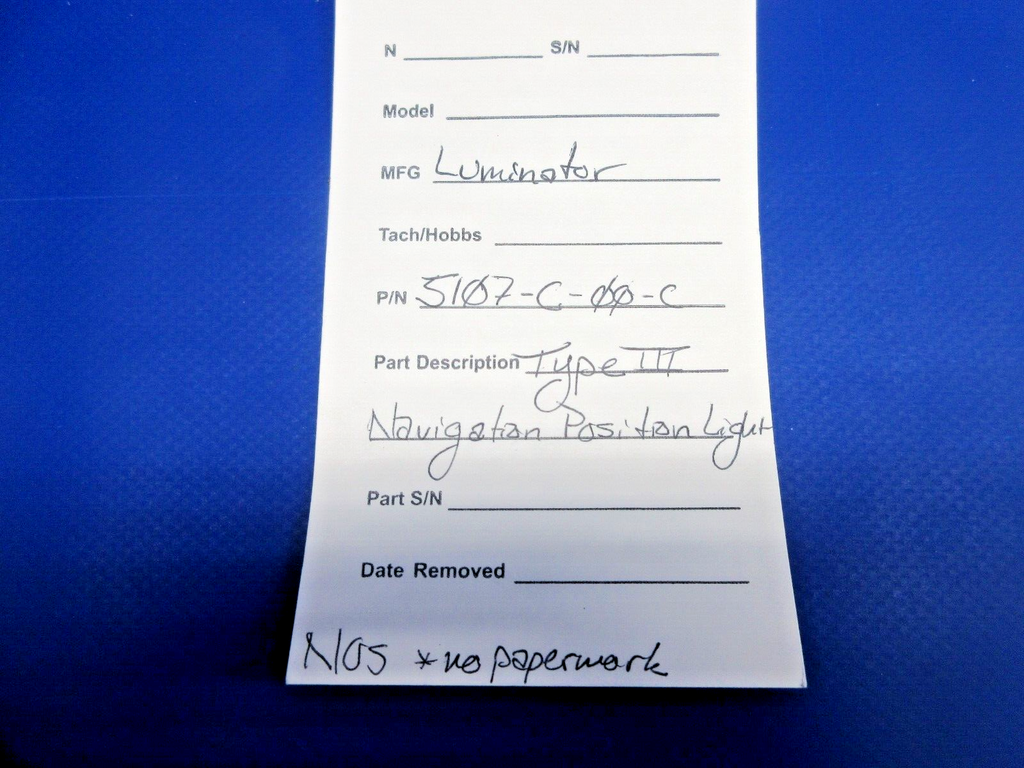 N ____________ S/N ____________
Model ________________________
MFG Luminator
Tach/Hobbs ____________________
P/N 5107-C-00-C
Part Description Type III
Navigation Position Light
Part S/N ________________________
Date Removed ____________________
NOS *no paperwork